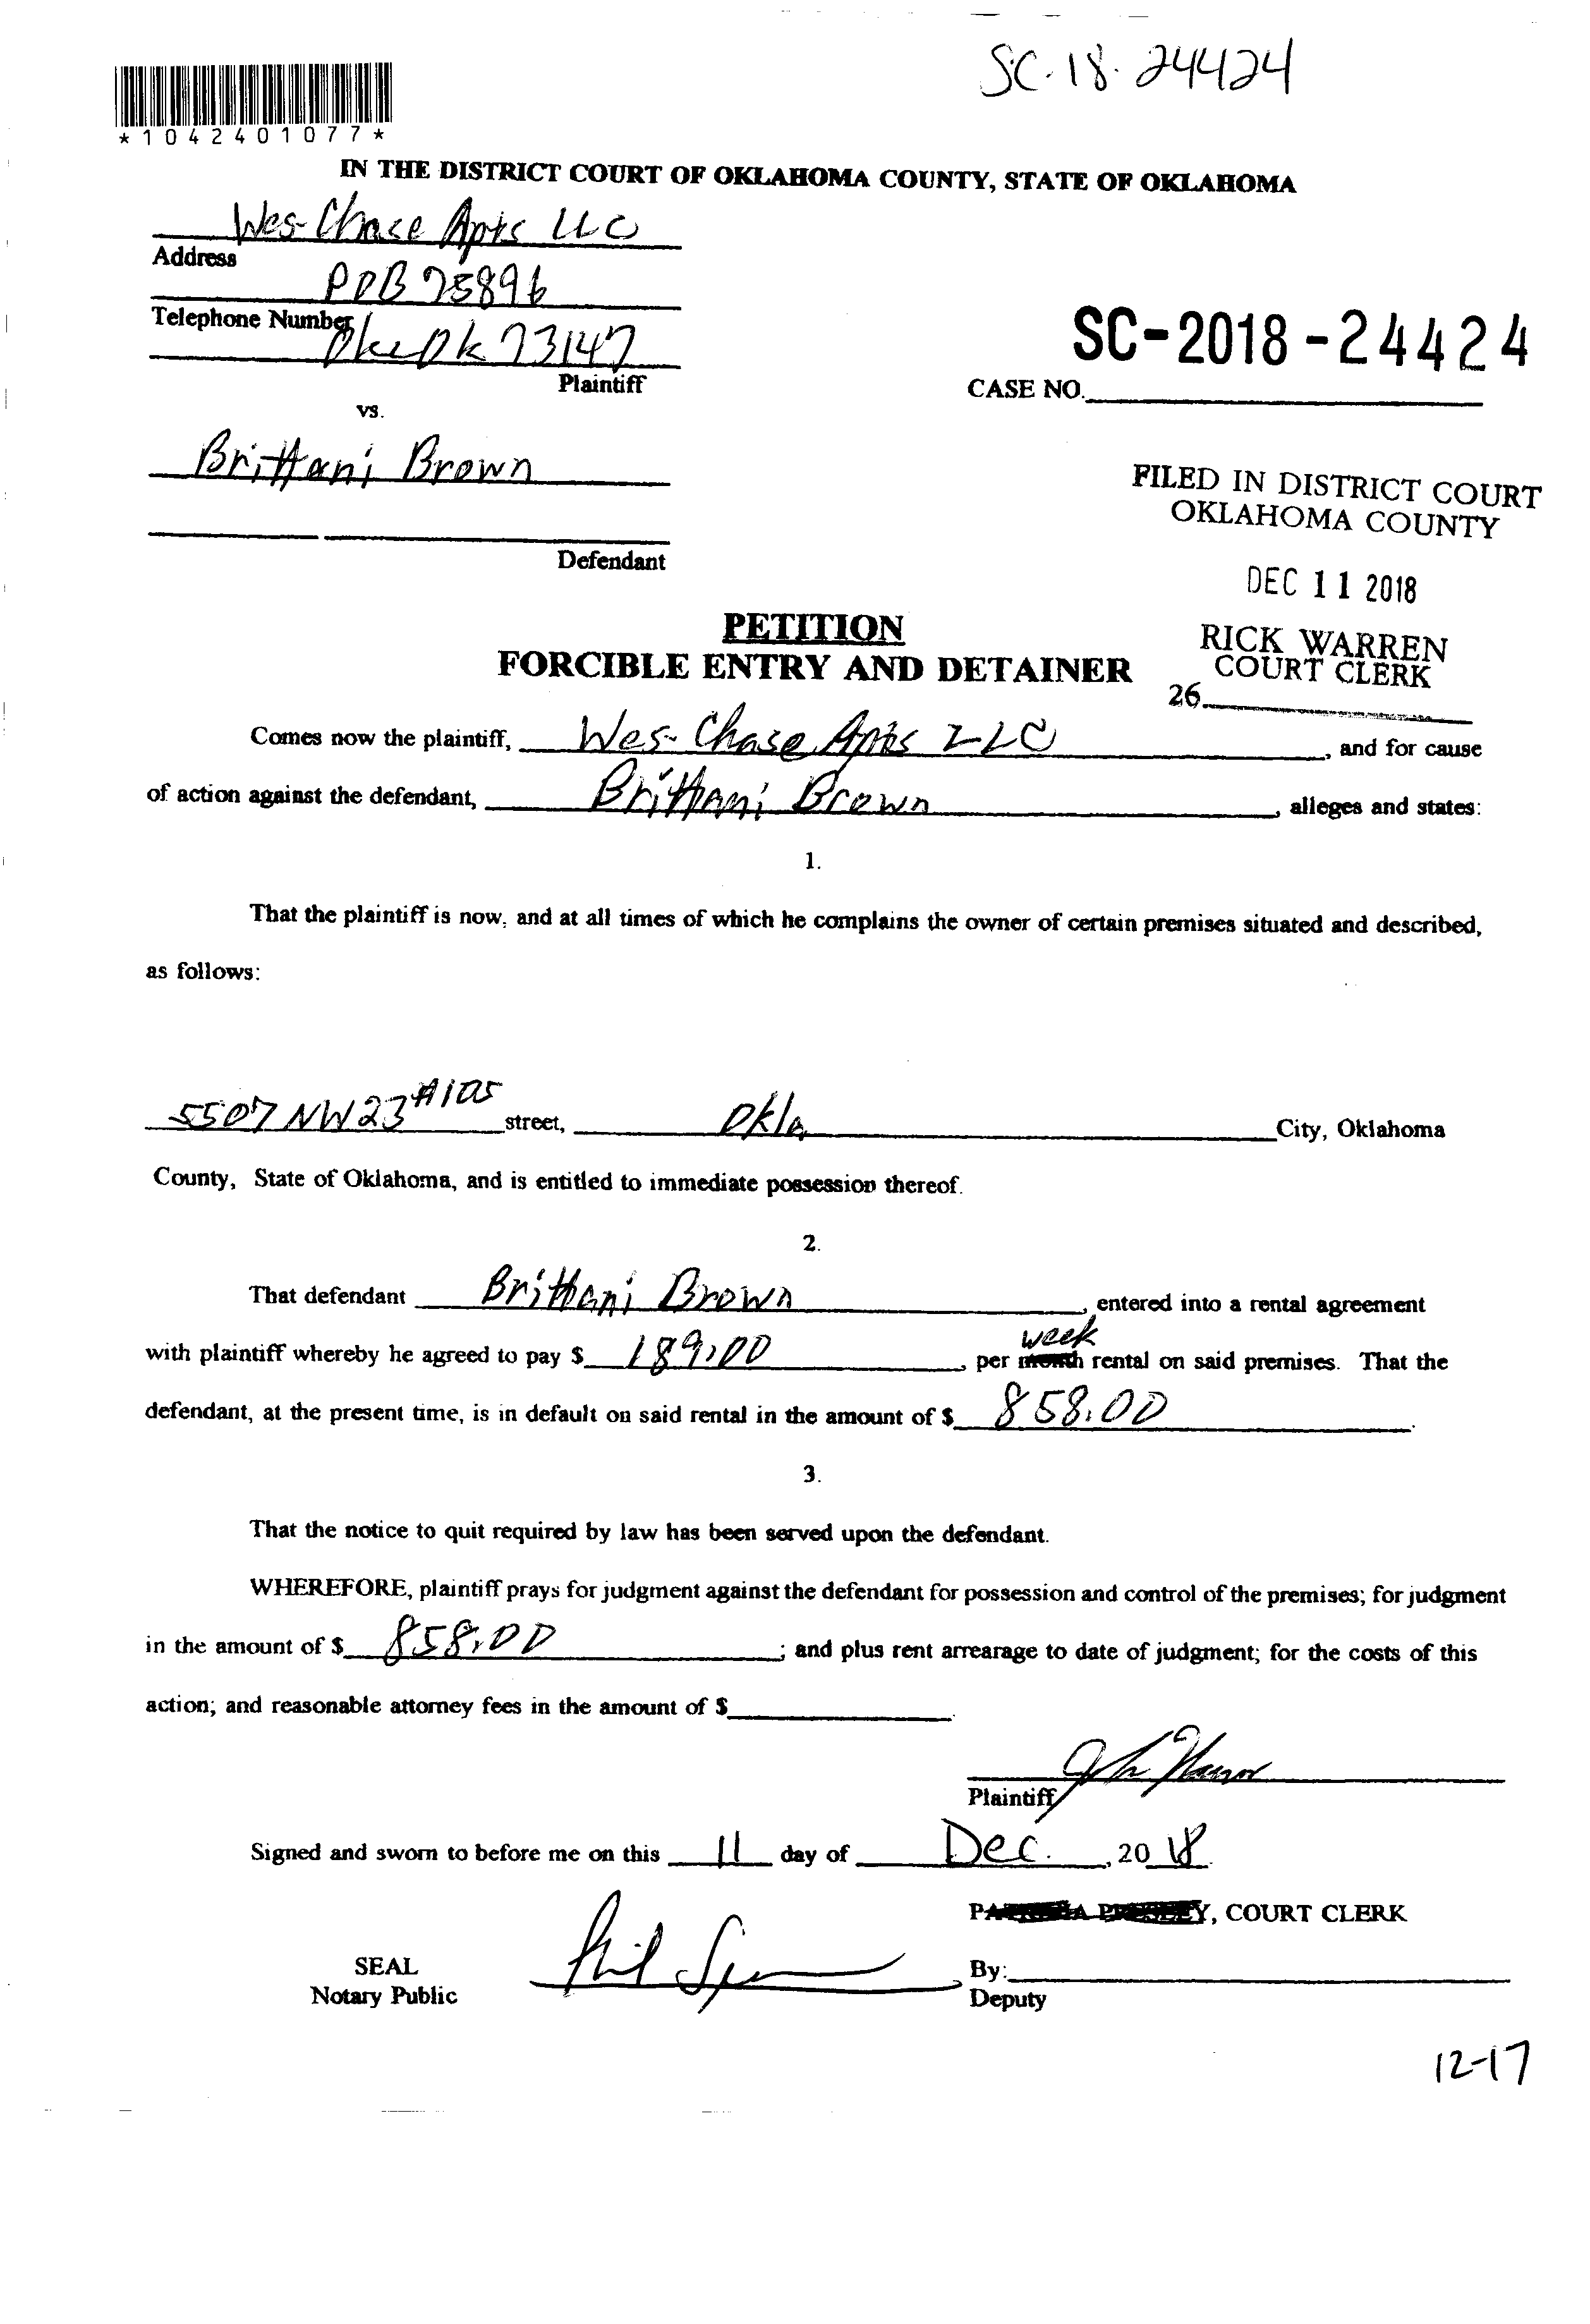 SC-18-24424
*1042401077*
IN THE DISTRICT COURT OF OKLAHOMA COUNTY, STATE OF OKLAHOMA
Wes-Chase Apts LLC
Address
POB 75896
Telephone Number
Okc Ok 73147
Plaintiff
SC-2018-24424
CASE NO.
vs.
Brittani Brown
Defendant
FILED IN DISTRICT COURT
OKLAHOMA COUNTY
DEC 11 2018
RICK WARREN
COURT CLERK
26
PETITION
FORCIBLE ENTRY AND DETAINER
Comes now the plaintiff, Wes-Chase Apts LLC, and for cause
of action against the defendant, Brittani Brown, alleges and states:
1.
That the plaintiff is now, and at all times of which he complains the owner of certain premises situated and described,
as follows:
5507 NW 23 #105 street, Okla City, Oklahoma
County, State of Oklahoma, and is entitled to immediate possession thereof.
2.
That defendant Brittani Brown, entered into a rental agreement
with plaintiff whereby he agreed to pay $ 189.00, per month week rental on said premises. That the
defendant, at the present time, is in default on said rental in the amount of $ 858.00.
3.
That the notice to quit required by law has been served upon the defendant.
WHEREFORE, plaintiff prays for judgment against the defendant for possession and control of the premises; for judgment
in the amount of $ 858.00; and plus rent arrearage to date of judgment; for the costs of this
action; and reasonable attorney fees in the amount of $
Plaintiff
Signed and sworn to before me on this 11 day of Dec., 2018.
, COURT CLERK
SEAL
Notary Public
By:
Deputy
12-17